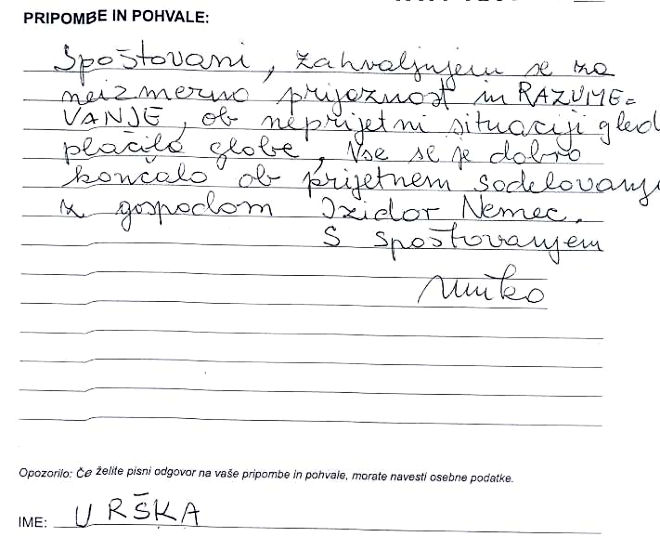 PRIPOMBE IN POHVALE:
Spoštovani, zahvaljujem se za
neizmerno prijaznost in RAZUME=
VANJE, ob neprijetni situaciji gled
plačila globe, Vse se je dobro
končalo ob prijetnem sodelovanju
z gospodom Izidor Nemec.
S spoštovanjem
Opozorilo: Če želite pisni odgovor na vaše pripombe in pohvale, morate navesti osebne podatke.
IME: URŠKA